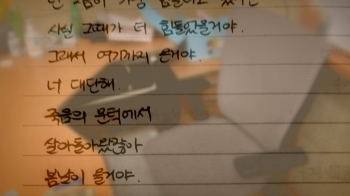 사실 그때가 더 힘들었을거야.
그래서 여기까지 온거야.
너 대단해.
죽음의 문턱에서
살아돌아왔잖아
봄날이 올거야.